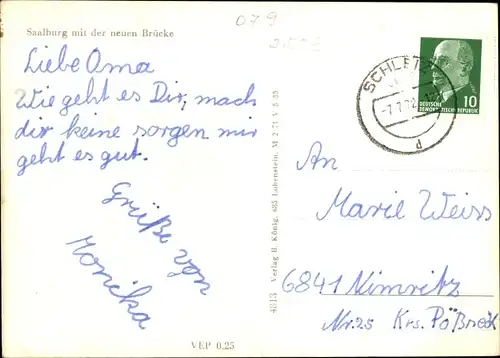 Saalburg mit der neuen Brücke
079
Liebe Oma
Wie geht es Dir, mach
dir keine sorgen mir
geht es gut.
Grüße von
Monika
VEP 0,25
4313 Verlag H. König, 685 Lobenstein, M 2 74 V 5 35
SCHLEIZ
DEUTSCHE
DEMOKRATISCHE REPUBLIK
10
d
An
Marie Weiss
6841 Nimritz
Nr. 25 Krs. Pößneck